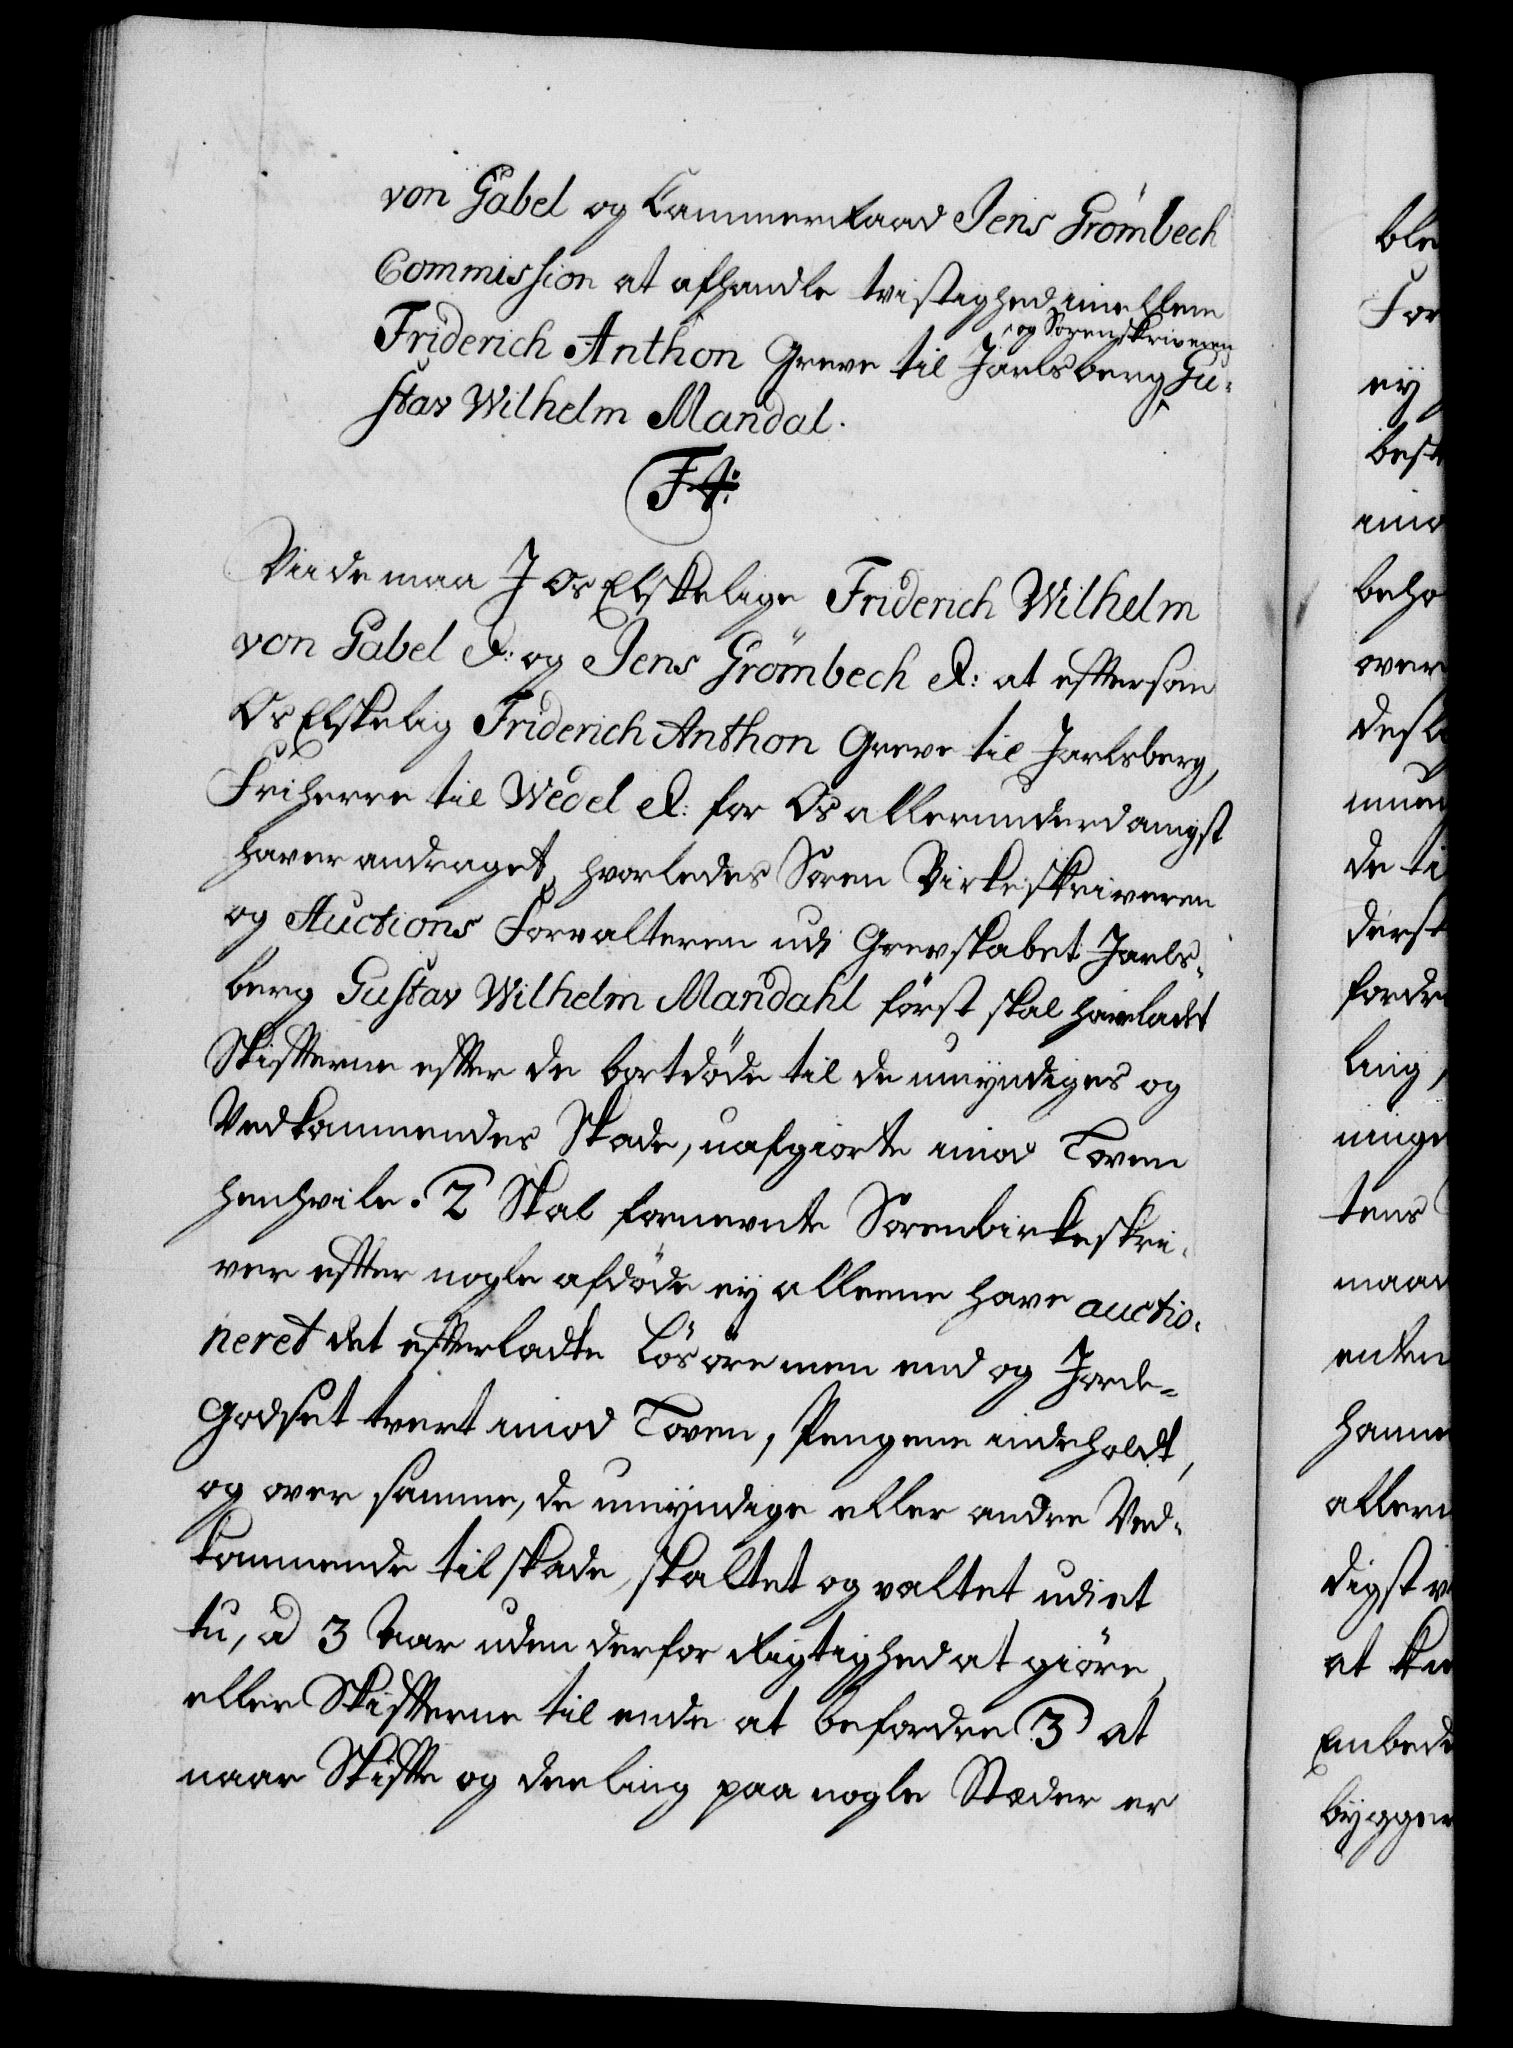 von Gabel og Cammerraad Jens Grömbech
Commission at afhandle tvistighed imellem
Friderich Anthon Greve til Jarlsberg og Sorenskriveren Gu-
stav Wilhelm Mandal.
F4:
Viide maa I Os Elskelige Friderich Wilhelm
von Gabel &: og Jens Grömbech &: at eftersom
Os Elskelig Friderich Anthon Greve til Jarlsberg,
Friherre til Wedel &: for Os allerunderdanigst
haver andraget, hvorledes Soren Birkeskriveren
og Auctions Forvalteren udi Grevskabet Jarls-
berg Gustav Wilhelm Mandahl först skal have ladet
Skifterne efter de bortdöde til de umyndiges og
Vedkommendes Skade, uafgiorte imod Loven
henhvile. 2) Skal formeente Sorenbirkeskri-
ver efter nogle afdöde ey alleene have auctio-
neret det efterladte Lösöre men end og Jorde-
Godset tvert imod Loven, Pengene indeholdt,
og over samme, de umyndige eller andre Ved-
kommende til skade, skaltet og valtet udi et
tu, a 3 Aar uden derfor Rigtighed at giöre,
eller Skifterne til ende at befordre 3) at
naar Skifte og deeling paa nogle Stæder er
ble
For
ey
best
imo
beho
over
desl
de ti
derst
fordr
ling,
ninge
tens
maa
enten
hanne
aller
digst v
at
Embede
bygger